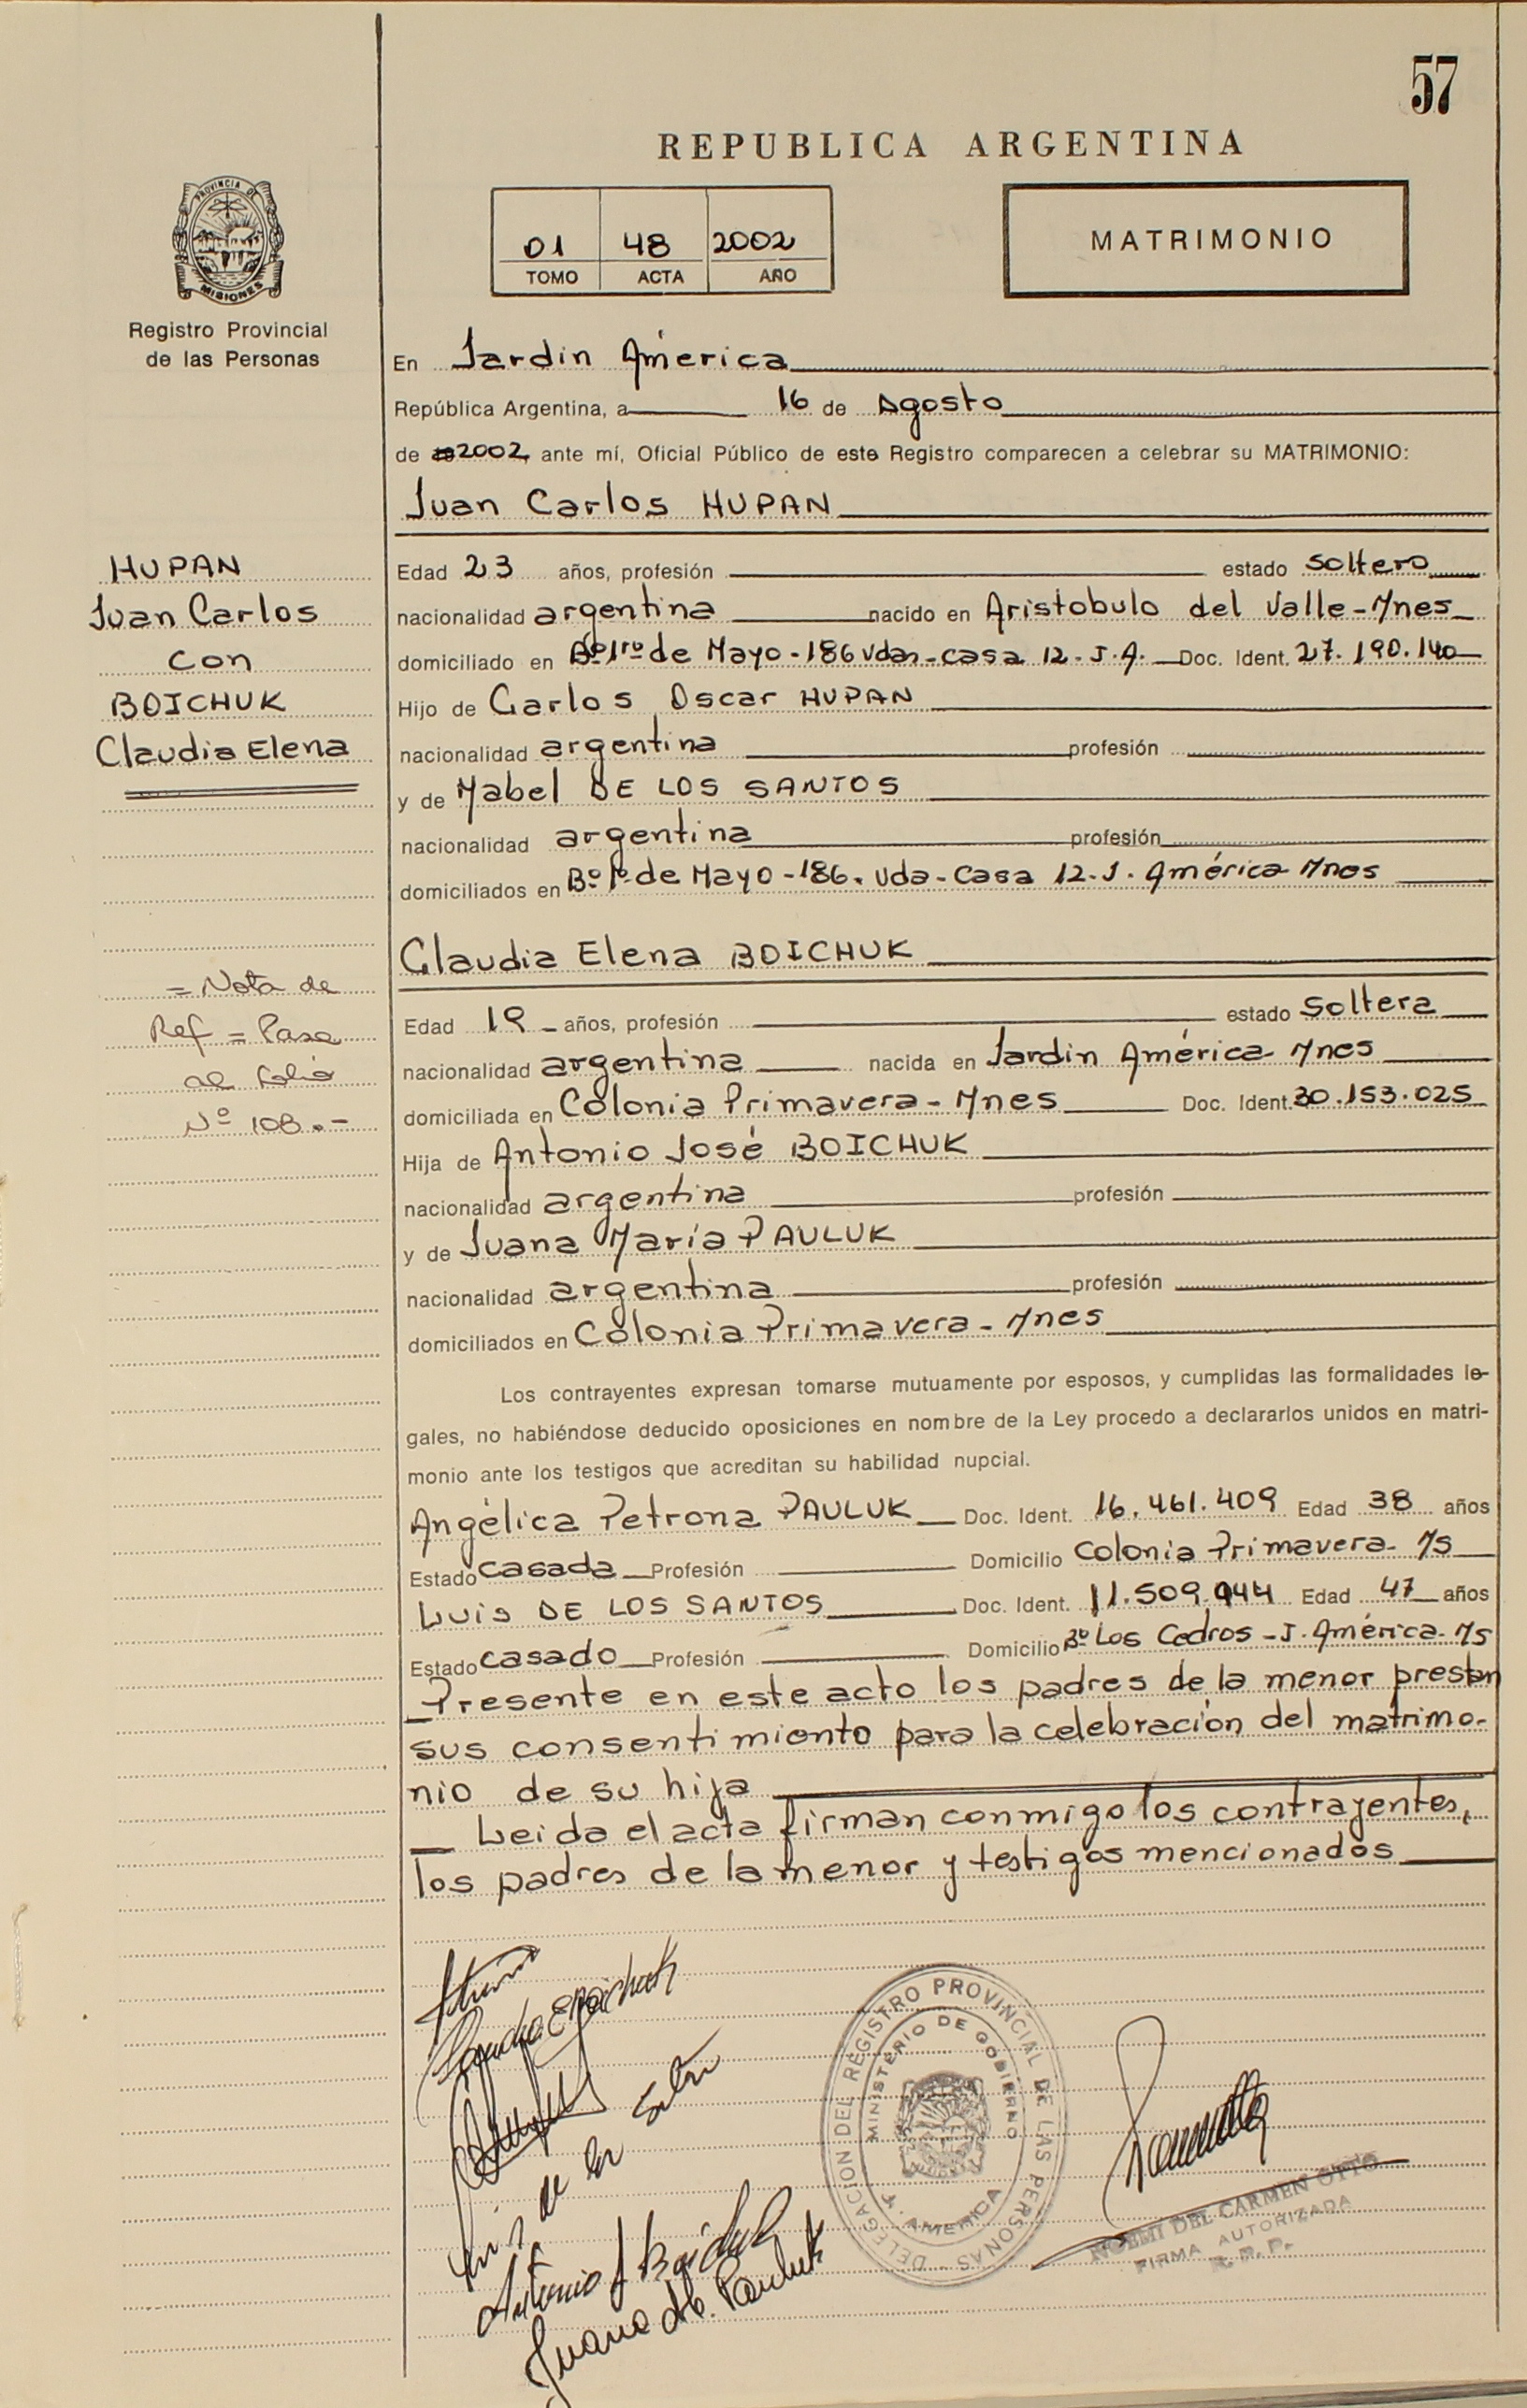 57
REPUBLICA ARGENTINA
PROVINCIA DE
MISIONES
Registro Provincial
de las Personas
01 48 2002
TOMO ACTA AÑO
MATRIMONIO
En Jardin América
República Argentina, a 16 de Agosto
de 2002, ante mí, Oficial Público de este Registro comparecen a celebrar su MATRIMONIO:
Juan Carlos HUPAN
HUPAN
Juan Carlos
con
BOICHUK
Claudia Elena
Edad 23 años, profesión estado soltero
nacionalidad argentina nacido en Aristobulo del Valle-Mnes
domiciliado en Bº 1ro de Mayo-186 Vdas-casa 12-J.A. Doc. Ident. 27.190.140
Hijo de Carlos Oscar HUPAN
nacionalidad argentina profesión
y de Mabel DE LOS SANTOS
nacionalidad argentina profesión
domiciliados en Bº 1º de Mayo-186. Vda-Casa 12-J. América Mnes
Claudia Elena BOICHUK
= Nota de
Ref = Pasa
al folio
Nº 108.-
Edad 19 años, profesión estado soltera
nacionalidad argentina nacida en Jardin América Mnes
domiciliada en Colonia Primavera-Mnes Doc. Ident. 30.153.025
Hija de Antonio José BOICHUK
nacionalidad argentina profesión
y de Juana María PAULUK
nacionalidad argentina profesión
domiciliados en Colonia Primavera-Mnes
Los contrayentes expresan tomarse mutuamente por esposos, y cumplidas las formalidades le-
gales, no habiéndose deducido oposiciones en nombre de la Ley procedo a declararlos unidos en matri-
monio ante los testigos que acreditan su habilidad nupcial.
Angélica Petrona PAULUK Doc. Ident. 16.461.409 Edad 38 años
Estado casada Profesión Domicilio Colonia Primavera-Ms
Luis DE LOS SANTOS Doc. Ident. 11.509.944 Edad 47 años
Estado casado Profesión Domicilio Bº Los Cedros-J. América-Ms
Presente en este acto los padres de la menor prestan
sus consentimiento para la celebración del matrimo-
nio de su hija
Leida el acta firman conmigo los contrayentes,
los padres de la menor y testigos mencionados
Claudia E Boichuk
Luis de los
Antonio J Boichuk
Juana M. Pauluk
DELEGACION DEL REGISTRO PROVINCIAL DE LAS PERSONAS
MINISTERIO DE GOBIERNO
J. AMERICA
NOEMI DEL CARMEN OTTO
FIRMA AUTORIZADA
R.P.P.